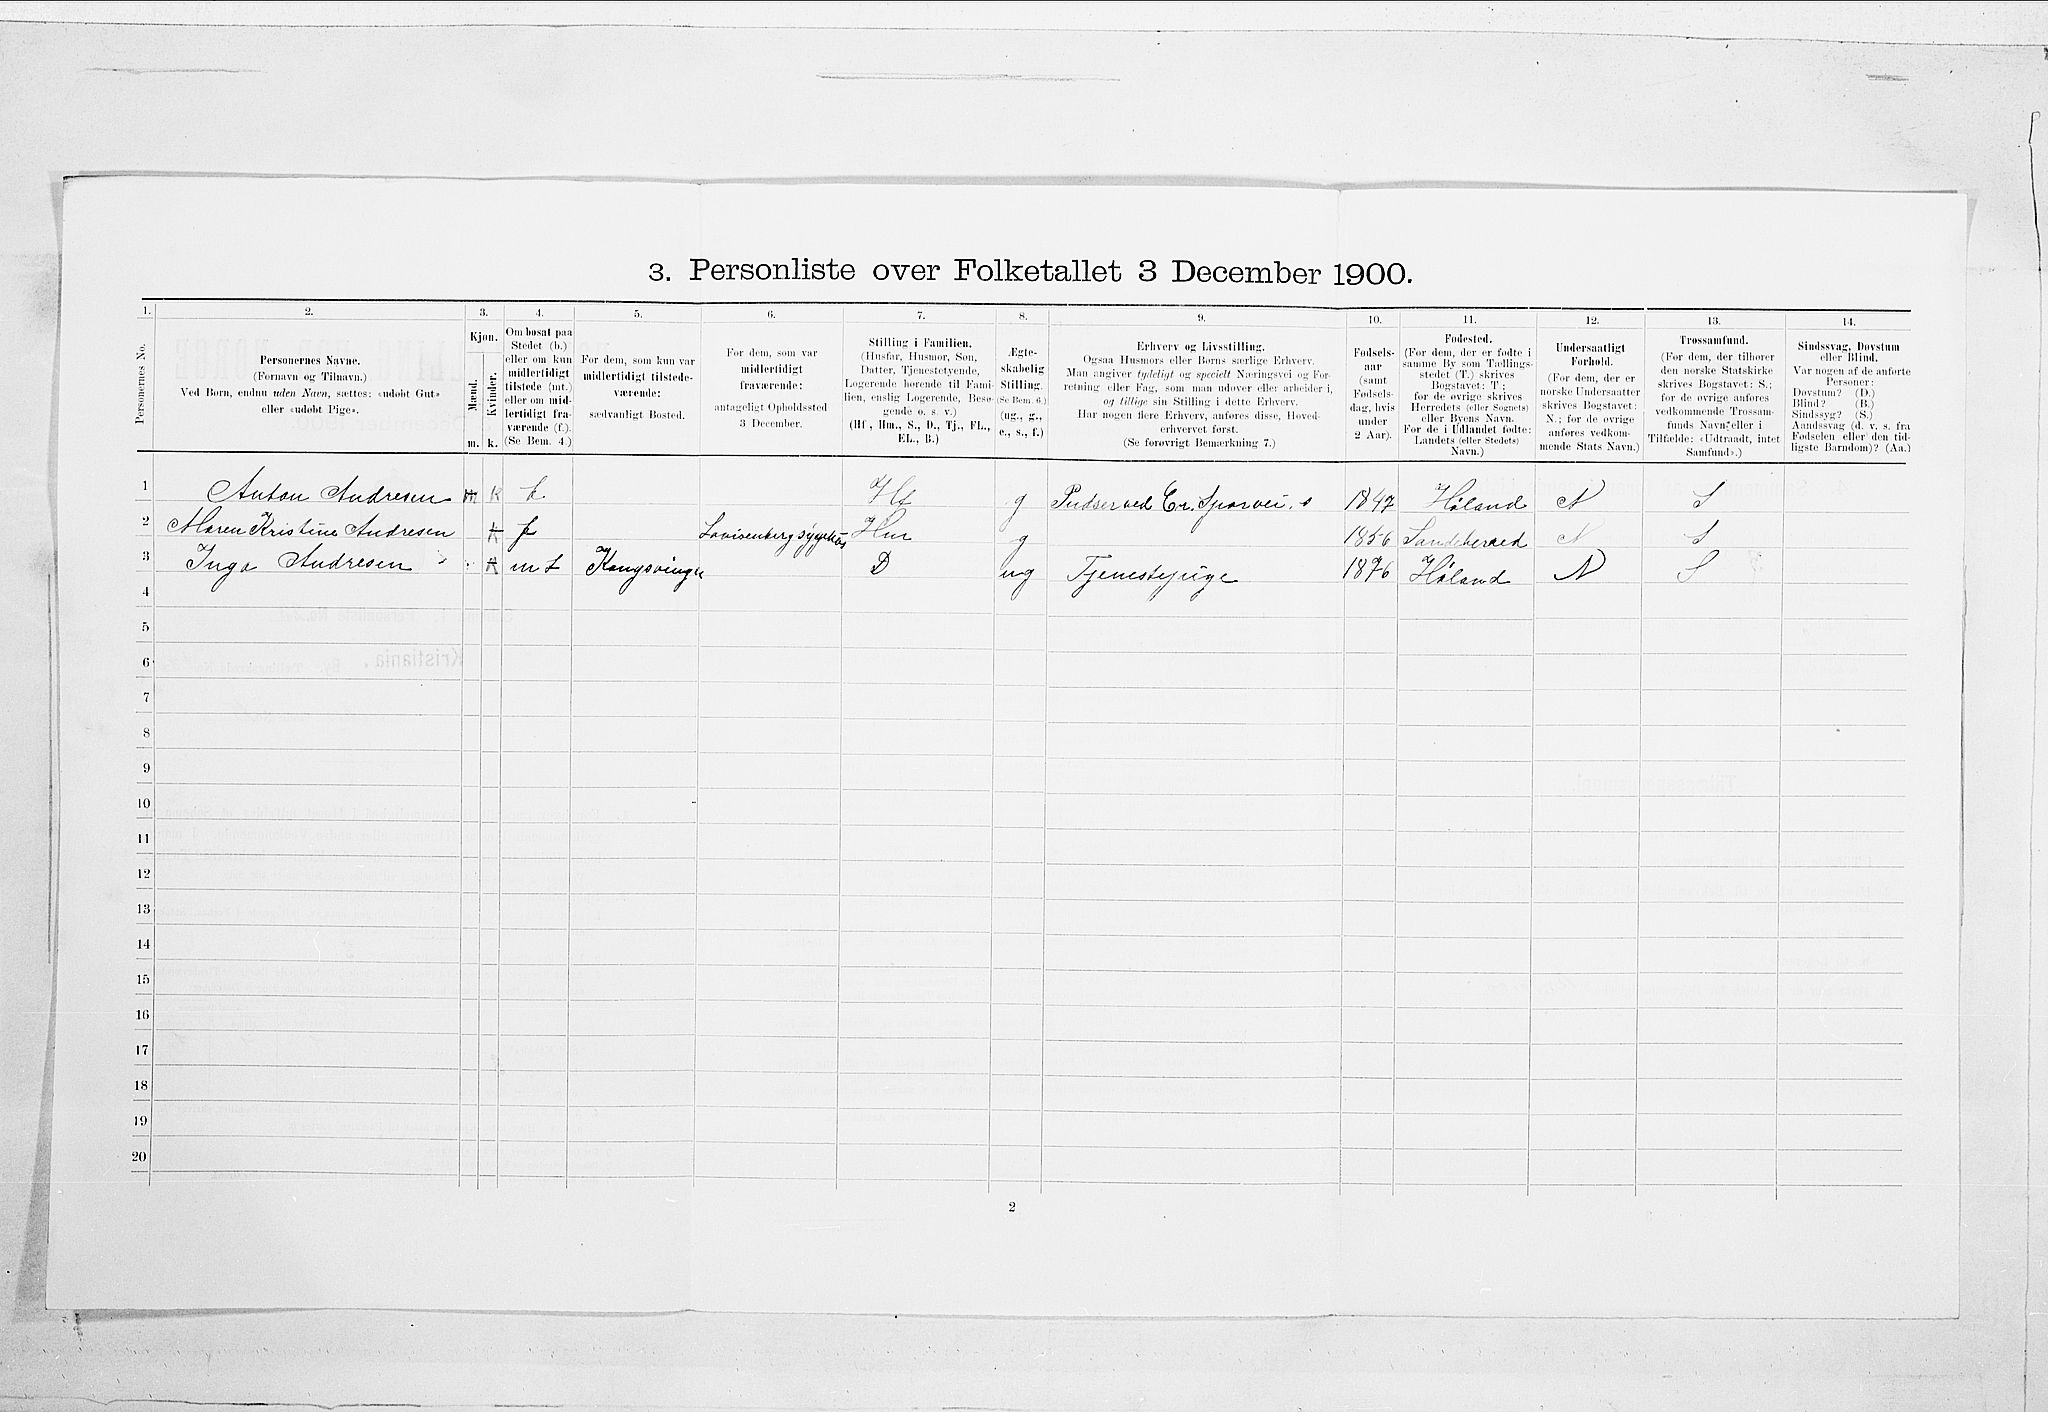 3. Personliste over Folketallet 3 December 1900.
1. 2. 3. 4. 5. 6. 7. 8. 9. 10. 11. 12. 13. 14.
Personernes No.
Personernes Navne.
(Fornavn og Tilnavn.)
Ved Børn, endnu uden Navn, sættes: «udøbt Gut»
eller «udøbt Pige».
Kjøn.
Mænd.
Kvinder.
m. k.
Om bosat paa
Stedet (b.)
eller om kun
midlertidigt
tilstede (mt.)
eller om mid-
lertidigt fra-
værende (f.).
(Se Bem. 4.)
For dem, som kun var
midlertidigt tilstede-
værende:
sædvanligt Bosted.
For dem, som var
midlertidigt
fraværende:
antageligt Opholdssted
3 December.
Stilling i Familien.
(Husfar, Husmor, Søn,
Datter, Tjenestetyende,
Logerende hørende til Fami-
lien, enslig Logerende, Besø-
gende o. s. v.)
(Hf., Hm., S., D., Tj., FL.,
EL., B.)
Ægte-
skabelig
Stilling.
(Se Bem. 6.)
(ug., g.,
e., s., f.)
Erhverv og Livsstilling.
Ogsaa Husmors eller Børns særlige Erhverv.
Man angiver tydeligt og specielt Næringsvei og For-
retning eller Fag, som man udøver eller arbeider i,
og tillige sin Stilling i dette Erhverv.
Har nogen flere Erhverv, anføres disse, Hoved-
erhvervet først.
(Se forøvrigt Bemærkning 7.)
Fødsels-
aar
(samt
Fødsels-
dag, hvis
under
2 Aar).
Fødested.
(For dem, der er fødte i
samme By som Tællings-
stedet (T.) skrives
Bogstavet: T;
for de øvrige skrives
Herredets (eller Sognets)
eller Byens Navn.
For de i Udlandet fødte:
Landets (eller Stedets)
Navn.)
Undersaatligt
Forhold.
(For dem, der er
norske Undersaatter
skrives Bogstavet:
N.; for de øvrige
anføres vedkom-
mende Stats Navn.)
Trossamfund.
(For dem, der tilhører
den norske Statskirke
skrives Bogstavet: S.;
for de øvrige anføres
vedkommende Trossam-
funds Navn, eller i
Tilfælde: «Udtraadt, intet
Samfund».)
Sindssvag, Døvstum
eller Blind.
Var nogen af de anførte
Personer:
Døvstum? (D.)
Blind? (B.)
Sindssyg? (S.)
Aandssvag (d. v. s. fra
Fødselen eller den tid-
ligste Barndom)? (Aa.)
1 Anton Andresen m k b. Hf g Pudser ved Er. Sporvei. s 1847 Høland N S
2 Maren Kristine Andresen k f Lovisenberg sygehus Hm g 1856 Sandeherred N S
3 Inga Andresen k mt Kongsvinger D ug Tjenestepige 1876 Høland N S
4
5
6
7
8
9
10
11
12
13
14
15
16
17
18
19
20
2